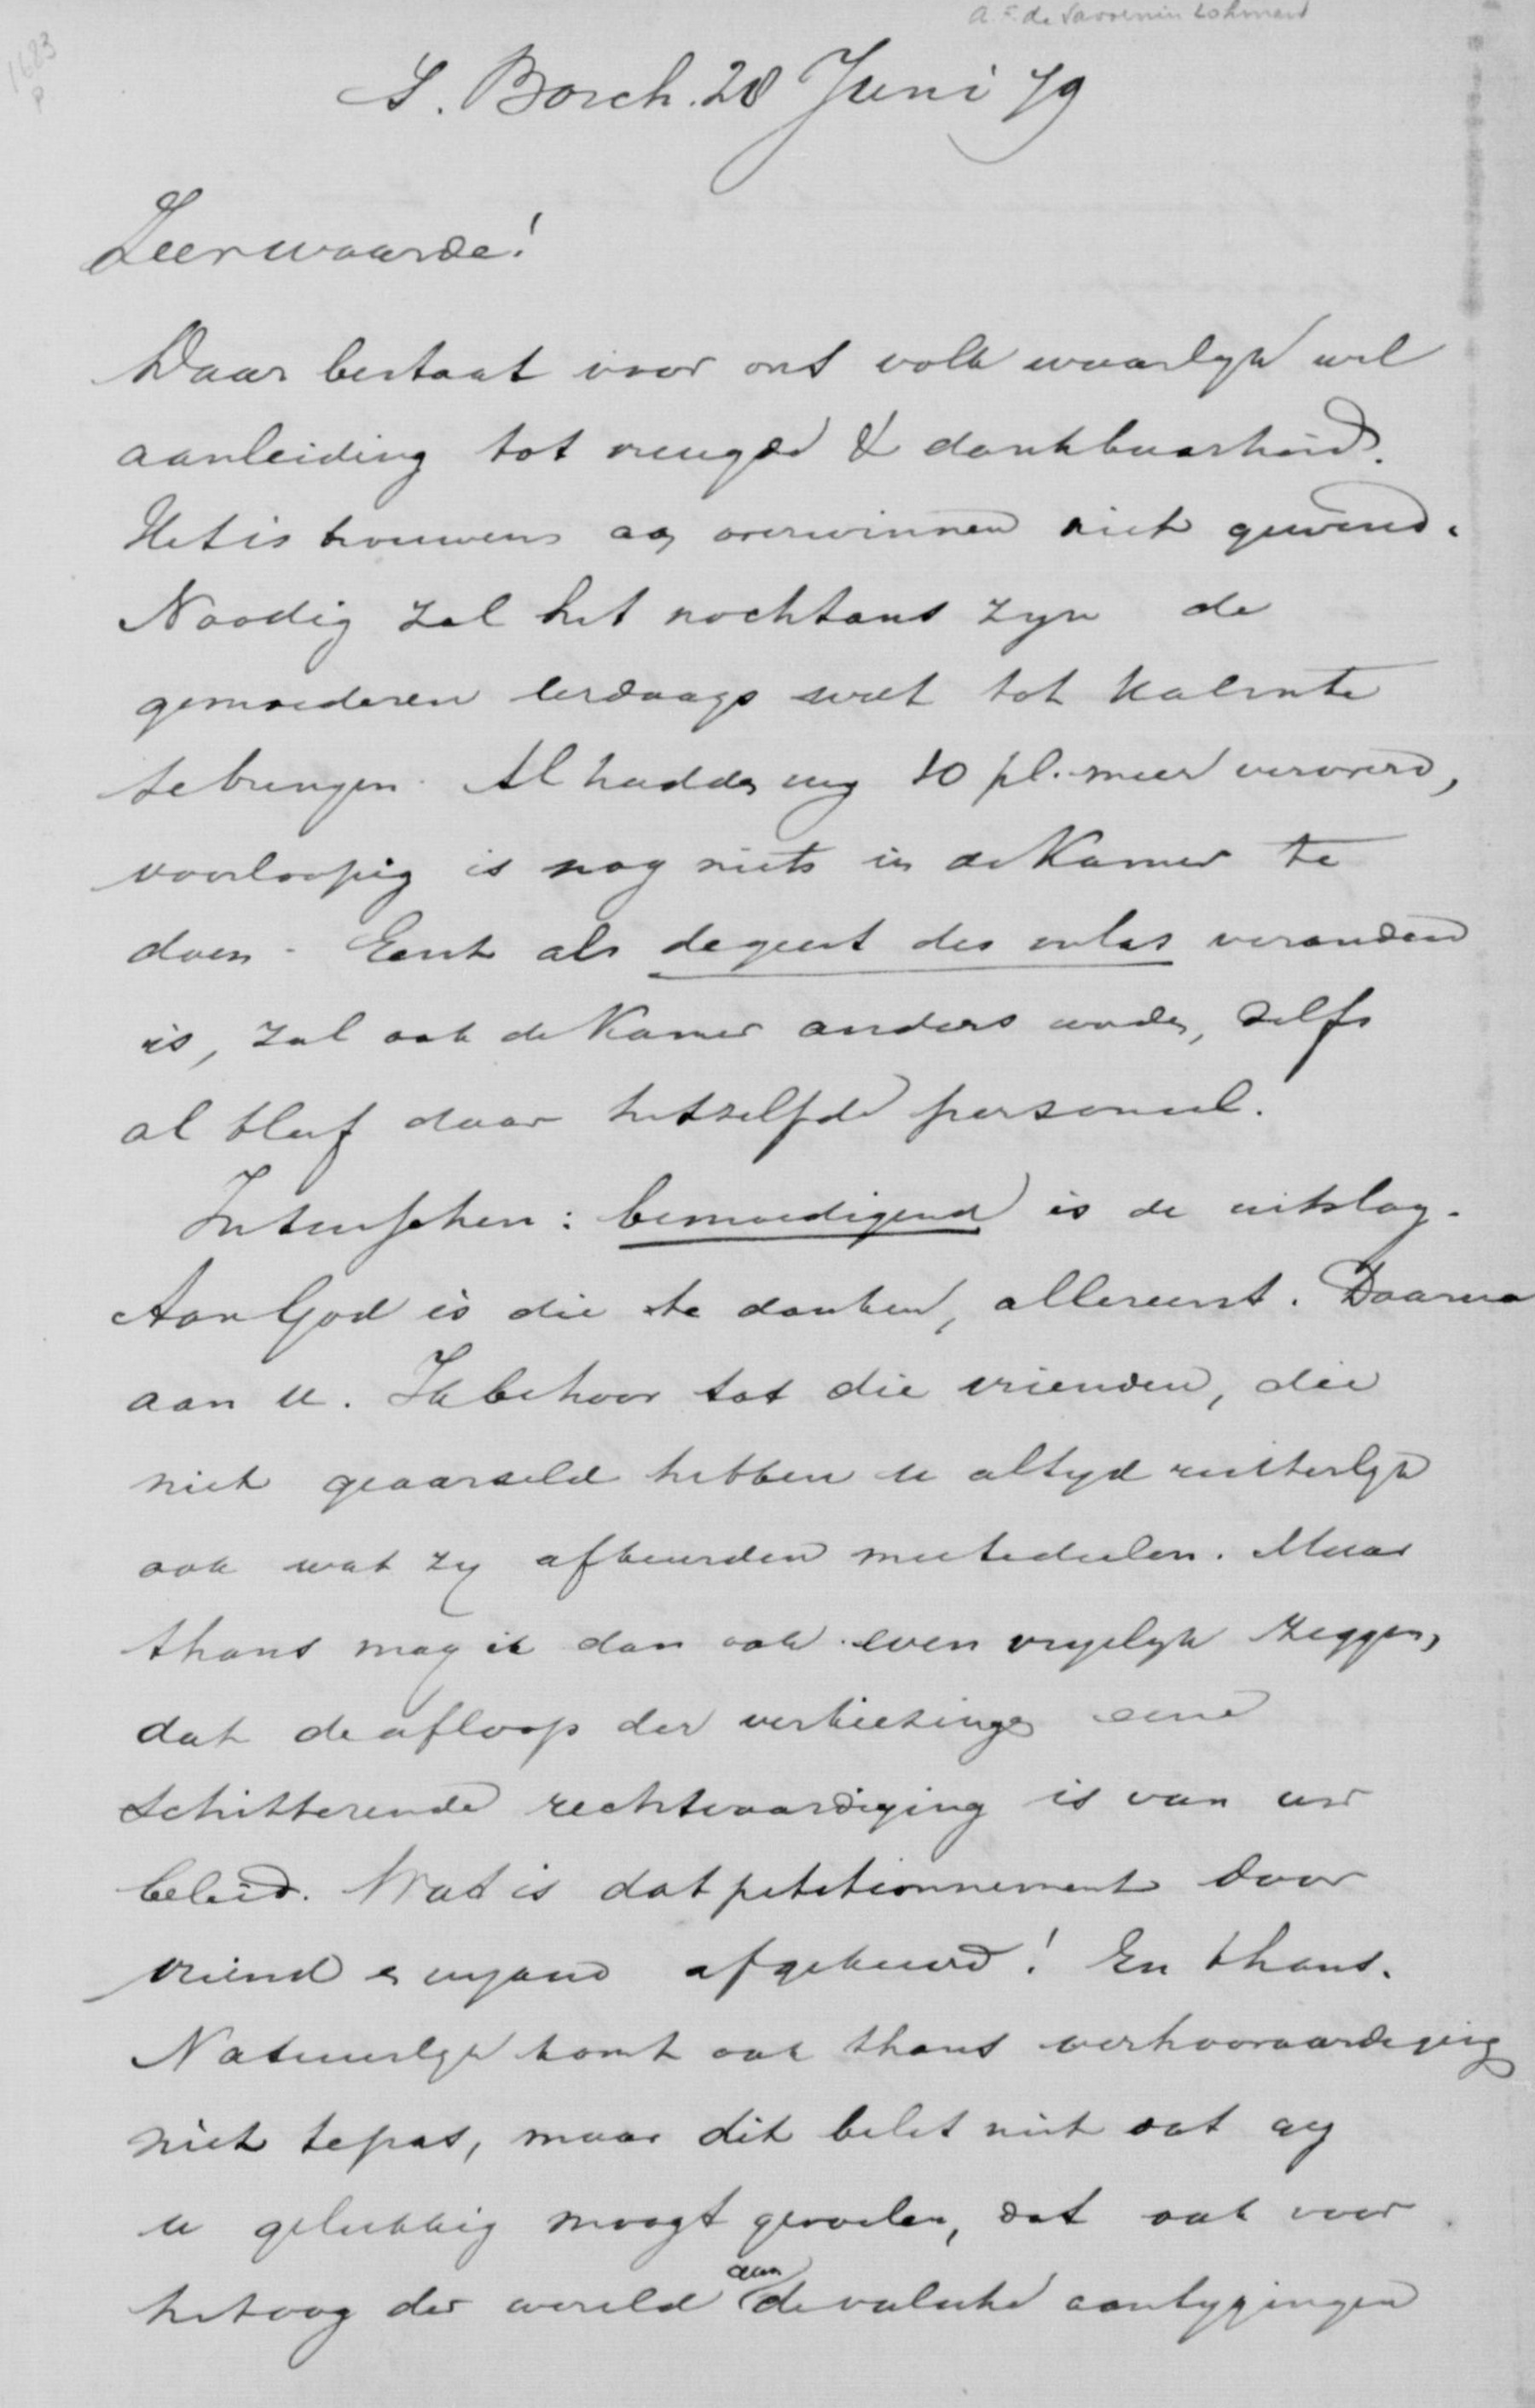 A. F. de Savornin Lohman
1683
P
S. Bosch. 28 Juni 79
Zeerwaarde!
Daar bestaat voor ons volk waarlyk wel
aanleiding tot vreugde & dankbaarheid.
Het is trouwens aan overwinnen niet gewend.
Noodig zal het nochtans zyn de
gemoederen eerdaags wat tot kalmte
te brengen. Al hadden wy 10 pl. meer veroverd,
voorloopig is nog niets in de Kamer te
doen. Eerst als de geest des volks veranderd
is, zal ook de Kamer anders worden, zelfs
al bleef daar hetzelfde personeel.
Intusschen: bemoedigend is de uitslag.
Aan God is die te danken, allereerst. Daarna
aan u. Ik behoor tot die vrienden, die
niet geaarzeld hebben u altyd ruiterlyk
ook wat zy afkeurden meetedeelen. Maar
thans mag ik dan ook even vryelyk zeggen,
dat de afloop der verkiezingen eene
schitterende rechtvaardiging is van uw
beleid. Wat is dat petitionnement door
vriend en vyand afgekeurd! En thans.
Natuurlyk komt ook thans verhoovaardiging
niet te pas, maar dit belet niet dat gy
u gelukkig moogt gevoelen, dat ook voor
het oog der wereld aan de valsche aantygingen